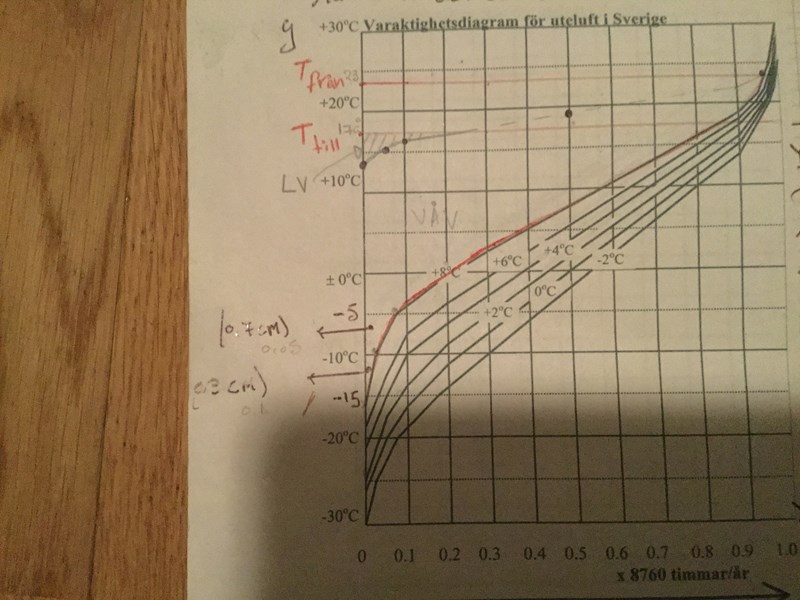 g
+30°C Varaktighetsdiagram för uteluft i Sverige
Tfrån 23
+20°C
Ttill 17
LV
+10°C
VÅV
± 0°C
+8°C
+6°C
+4°C
-2°C
0°C
+2°C
-5
(0.7 cm)
0.05
-10°C
-15
0.1
-20°C
-30°C
0 0.1 0.2 0.3 0.4 0.5 0.6 0.7 0.8 0.9 1.0
x 8760 timmar/år